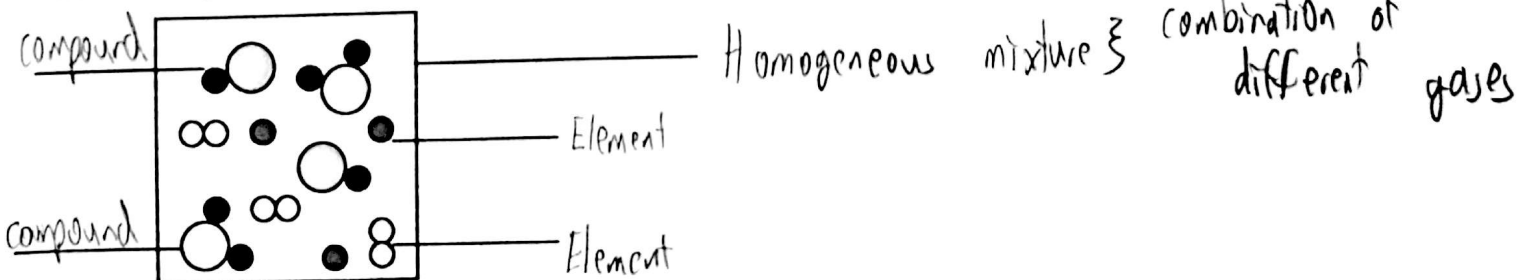 compound
Homogeneous mixture } combination of
different gases
Element
compound
Element